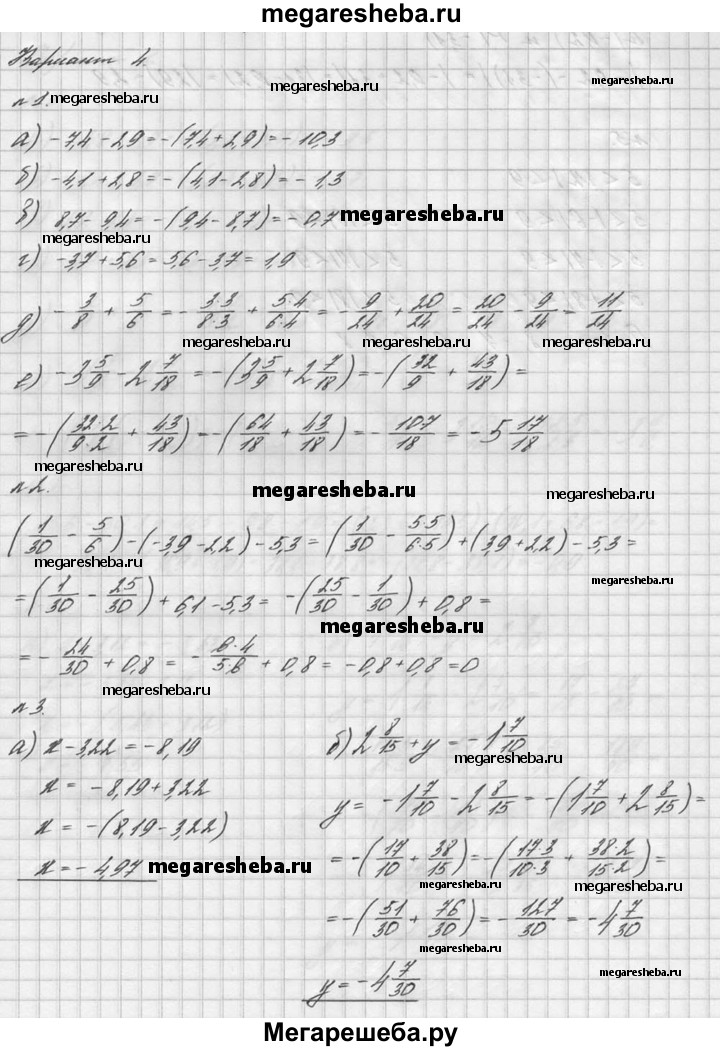 megaresheba.ru
Вариант 4.
№1.
megaresheba.ru megaresheba.ru megaresheba.ru
а) -7,4 - 2,9 = -(7,4 + 2,9) = -10,3
б) -4,1 + 2,8 = -(4,1 - 2,8) = -1,3
в) 8,7 - 9,4 = -(9,4 - 8,7) = -0,7
megaresheba.ru
megaresheba.ru
г) -3,7 + 5,6 = 5,6 - 3,7 = 1,9
д) -3/8 + 5/6 = -3·3/8·3 + 5·4/6·4 = -9/24 + 20/24 = 20/24 - 9/24 = 11/24
megaresheba.ru megaresheba.ru megaresheba.ru
е) -3 5/9 - 2 7/18 = -(3 5/9 + 2 7/18) = -(32/9 + 43/18) =
= -(32·2/9·2 + 43/18) = -(64/18 + 43/18) = -107/18 = -5 17/18
megaresheba.ru
№2.
megaresheba.ru megaresheba.ru
(1/30 - 5/6) - (-3,9 - 2,2) - 5,3 = (1/30 - 5·5/6·5) + (3,9 + 2,2) - 5,3 =
megaresheba.ru megaresheba.ru
= (1/30 - 25/30) + 6,1 - 5,3 = -(25/30 - 1/30) + 0,8 =
megaresheba.ru
= -24/30 + 0,8 = -6·4/5·6 + 0,8 = -0,8 + 0,8 = 0
megaresheba.ru
№3.
а) x - 3,22 = -8,19
x = -8,19 + 3,22
x = -(8,19 - 3,22)
x = -4,97
megaresheba.ru
б) 2 8/15 + y = -1 7/10
megaresheba.ru
y = -1 7/10 - 2 8/15 = -(1 7/10 + 2 8/15) =
= -(17/10 + 38/15) = -(17·3/10·3 + 38·2/15·2) =
megaresheba.ru megaresheba.ru
= -(51/30 + 76/30) = -127/30 = -4 7/30
megaresheba.ru
y = -4 7/30
megaresheba.ru
Мегарешеба.ру